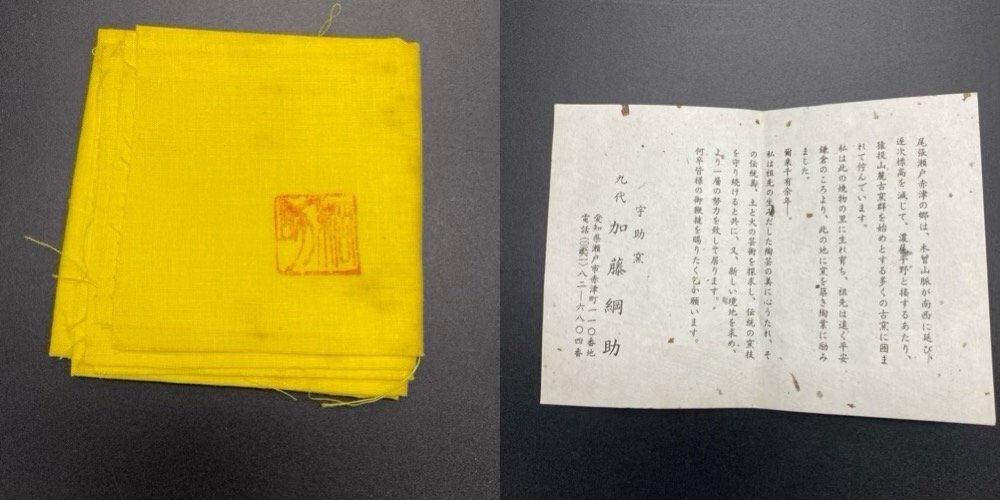 尾張瀬戸赤津の郷は、木曽山脈が南西に延び、
逐次標高を減じて、濃尾平野と接するあたり、
猿投山麓古窯群を始めとする多くの古窯に囲ま
れて佇んでいます。
私は此の焼物の里に生れ育ち、祖先は遠く平安
鎌倉のころより、此の地に窯を築き陶業に励み
ました。
爾来千有余年―。
私は祖先の生みだした陶芸の美に心うたれ、そ
の伝統、土と火の芸術を探求し、伝統の窯技
を守り続けると共に、又、新しい境地を求め、
より一層の努力を致して居ります。
何卒皆様の御鞭撻を賜りたく乞か願います。
宇助窯
九代 加藤綱助
愛知県瀬戸市赤津町一一〇番地
電話 八二―六八〇四番